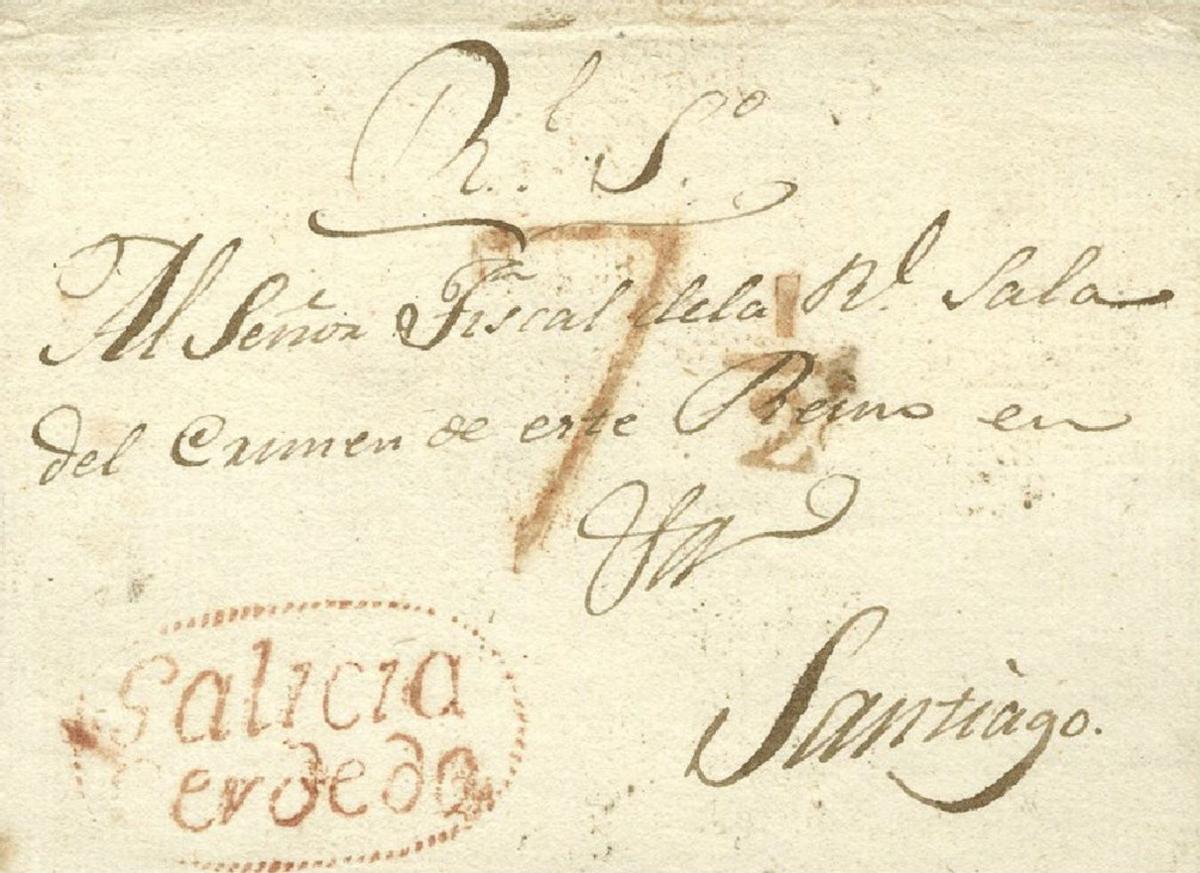 R.l S.o
Al Señor Fiscal dela R.l Sala
7 1/2
del Crimen de este Reino en
Santiago.
Galicia
erdedo